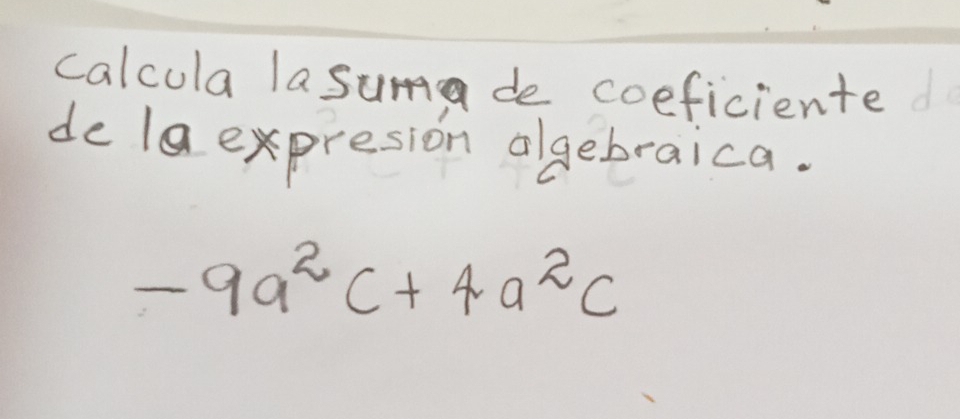 calcula la suma de coeficiente
de la expresión algebraica.
-9a²c+4a²c